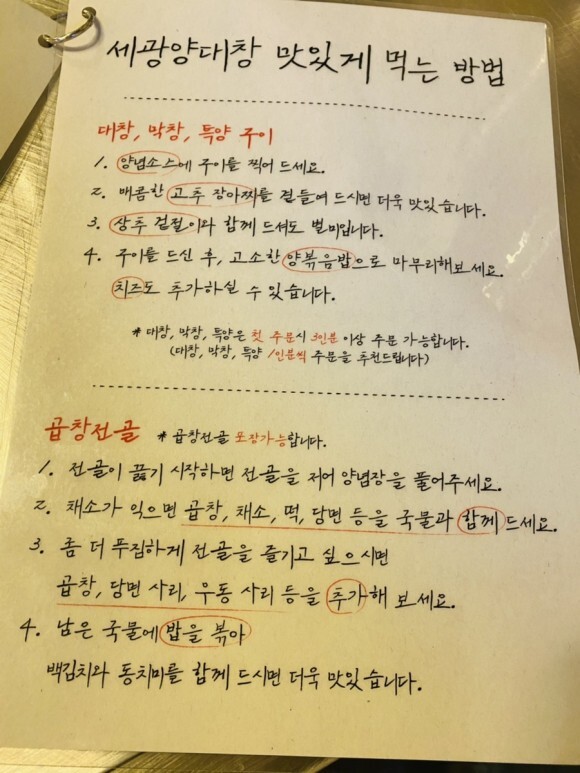 세광양대창 맛있게 먹는 방법
대창, 막창, 특양 구이
1. 양념소스에 구이를 찍어 드세요.
2. 매콤한 고추 장아찌를 곁들여 드시면 더욱 맛있습니다.
3. 상추 겉절이와 함께 드셔도 별미입니다.
4. 구이를 드신 후, 고소한 양볶음밥으로 마무리해보세요.
치즈도 추가하실 수 있습니다.
* 대창, 막창, 특양은 첫 주문시 3인분 이상 주문 가능합니다.
(대창, 막창, 특양 1인분씩 주문을 추천드립니다)
곱창전골 * 곱창전골 포장가능합니다.
1. 전골이 끓기 시작하면 전골을 저어 양념장을 풀어주세요.
2. 채소가 익으면 곱창, 채소, 떡, 당면 등을 국물과 함께 드세요.
3. 좀 더 푸짐하게 전골을 즐기고 싶으시면
곱창, 당면 사리, 우동 사리 등을 추가해 보세요.
4. 남은 국물에 밥을 볶아
백김치와 동치미를 함께 드시면 더욱 맛있습니다.